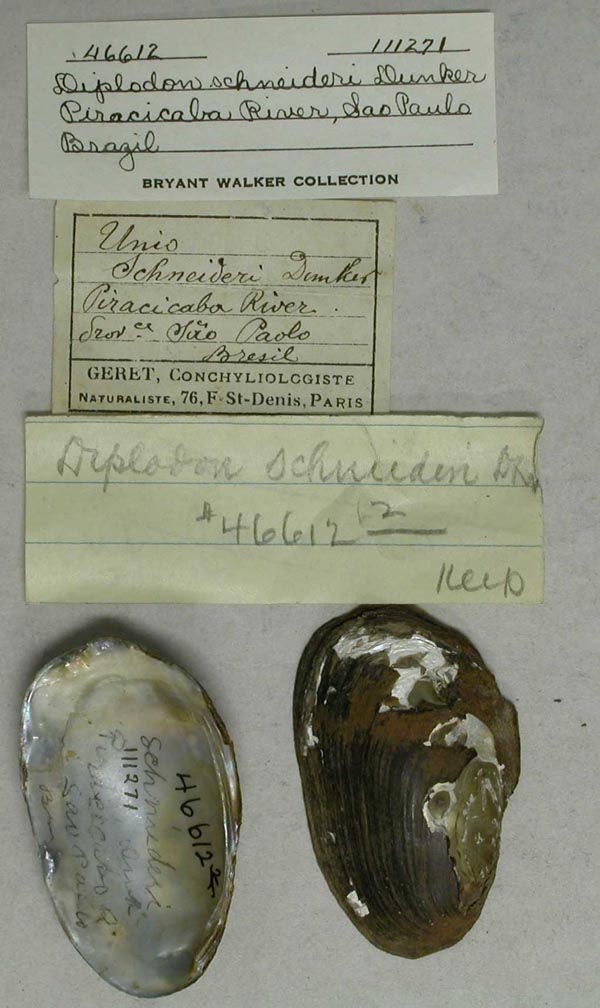 46612 111271
Diplodon schneideri Dunker
Piracicaba River, Sao Paulo
Brazil
BRYANT WALKER COLLECTION
Unio
Schneideri Dunker
Piracicaba River.
Prov ce São Paolo
Bresil
GERET, CONCHYLIOLOGISTE
NATURALISTE, 76, F. St-Denis, PARIS
Diplodon schneideri Dkr
#46612 2
Keep
46612
schneideri
Dunk.
111271
Piracicaba R.
Sao Paulo